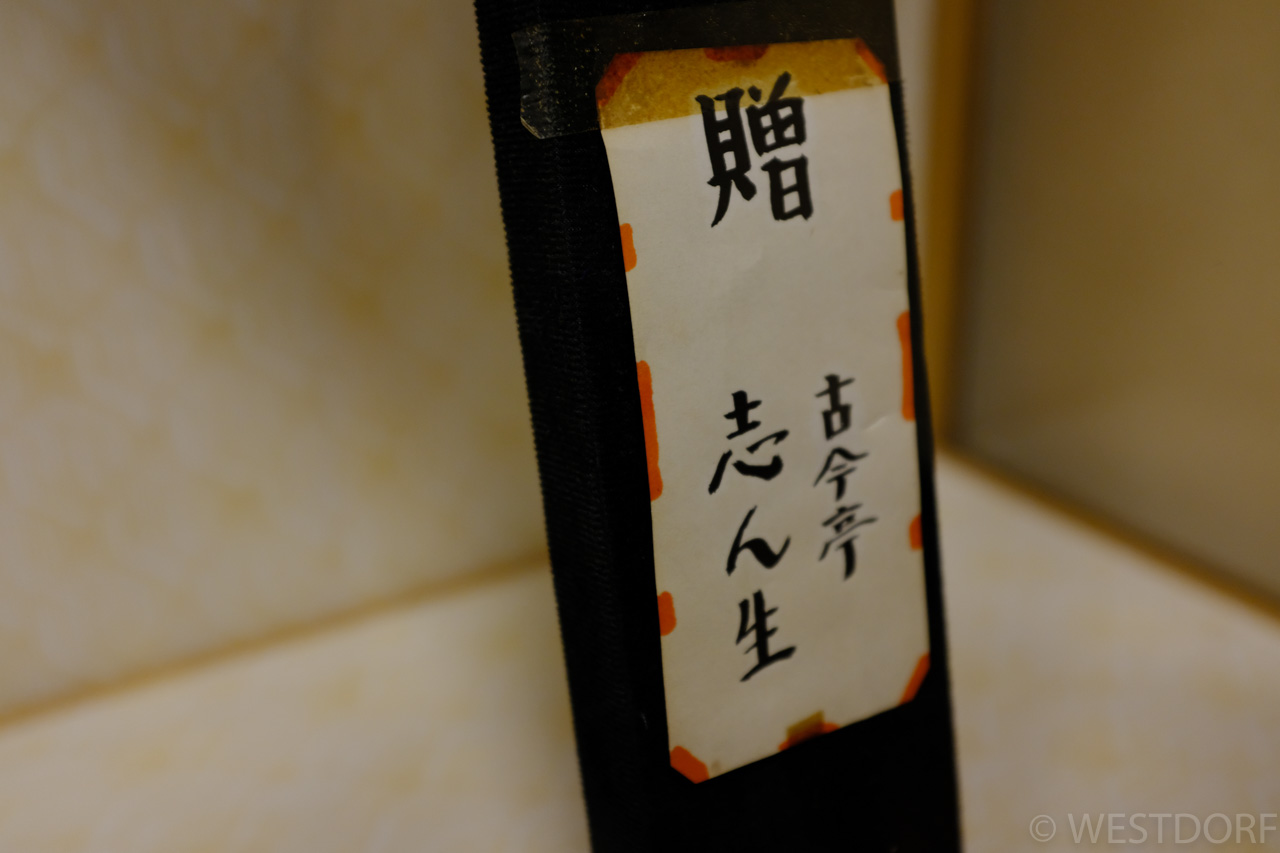 贈
古今亭
志ん生
© WESTDORF